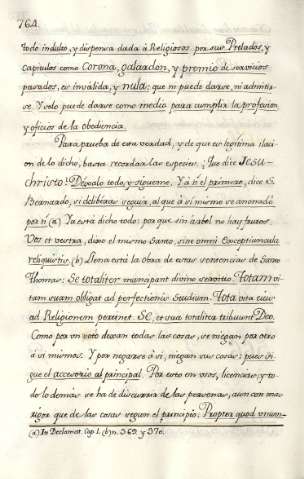 764.
todo indulto, y dispensa dada à Religiosos por sus Prelados, y
Capitulos como Corona, galaardon, y premio de servicios
pasados, es invàlida, y nula: que ni puede darse, ni admitir
se. Y solo puede darse como medio para cumplir la profesion
y oficios de la obediencia.
Para prueba de esta verdad, y de que es legitima ilaci
on de lo dicho, basta recordar las especies: ¿Que dice Jesu-
christo? Dèxalo todo, y sigueme. Y à ti el primero, dice S.
Bernardo, si deliberas seguir al que à sì mismo se anonadò
por ti (a) Ya està dicho todo: por que sin
Vos et vestra, dixo el mismo Santo, sine omni exceptiuncula
reliquistis. (b) Llena està la obra de estas sentencias de Santo
Thomas: Se totaliter mancipant divino servitio. Totam vi-
tam suam obligat ad perfectionis studium. Tota vita cuius
ad Religionem pertinet. Se, et sua totaliter tribuunt Deo.
Como por un voto dexan todas las cosas, se niegan por otro
à sì mismos. Y por negarse à sì, niegan sus cosas: pues si-
gue el accesorio al principal. Por esto en usos, licencias, y to-
do lo demàs se ha de discurrir de las personas, aun con mas
rigor que de las cosas segun el principio: Propter quod unum-
(a) In Declamat. Cap. 1. (b) n. 369. y 370.